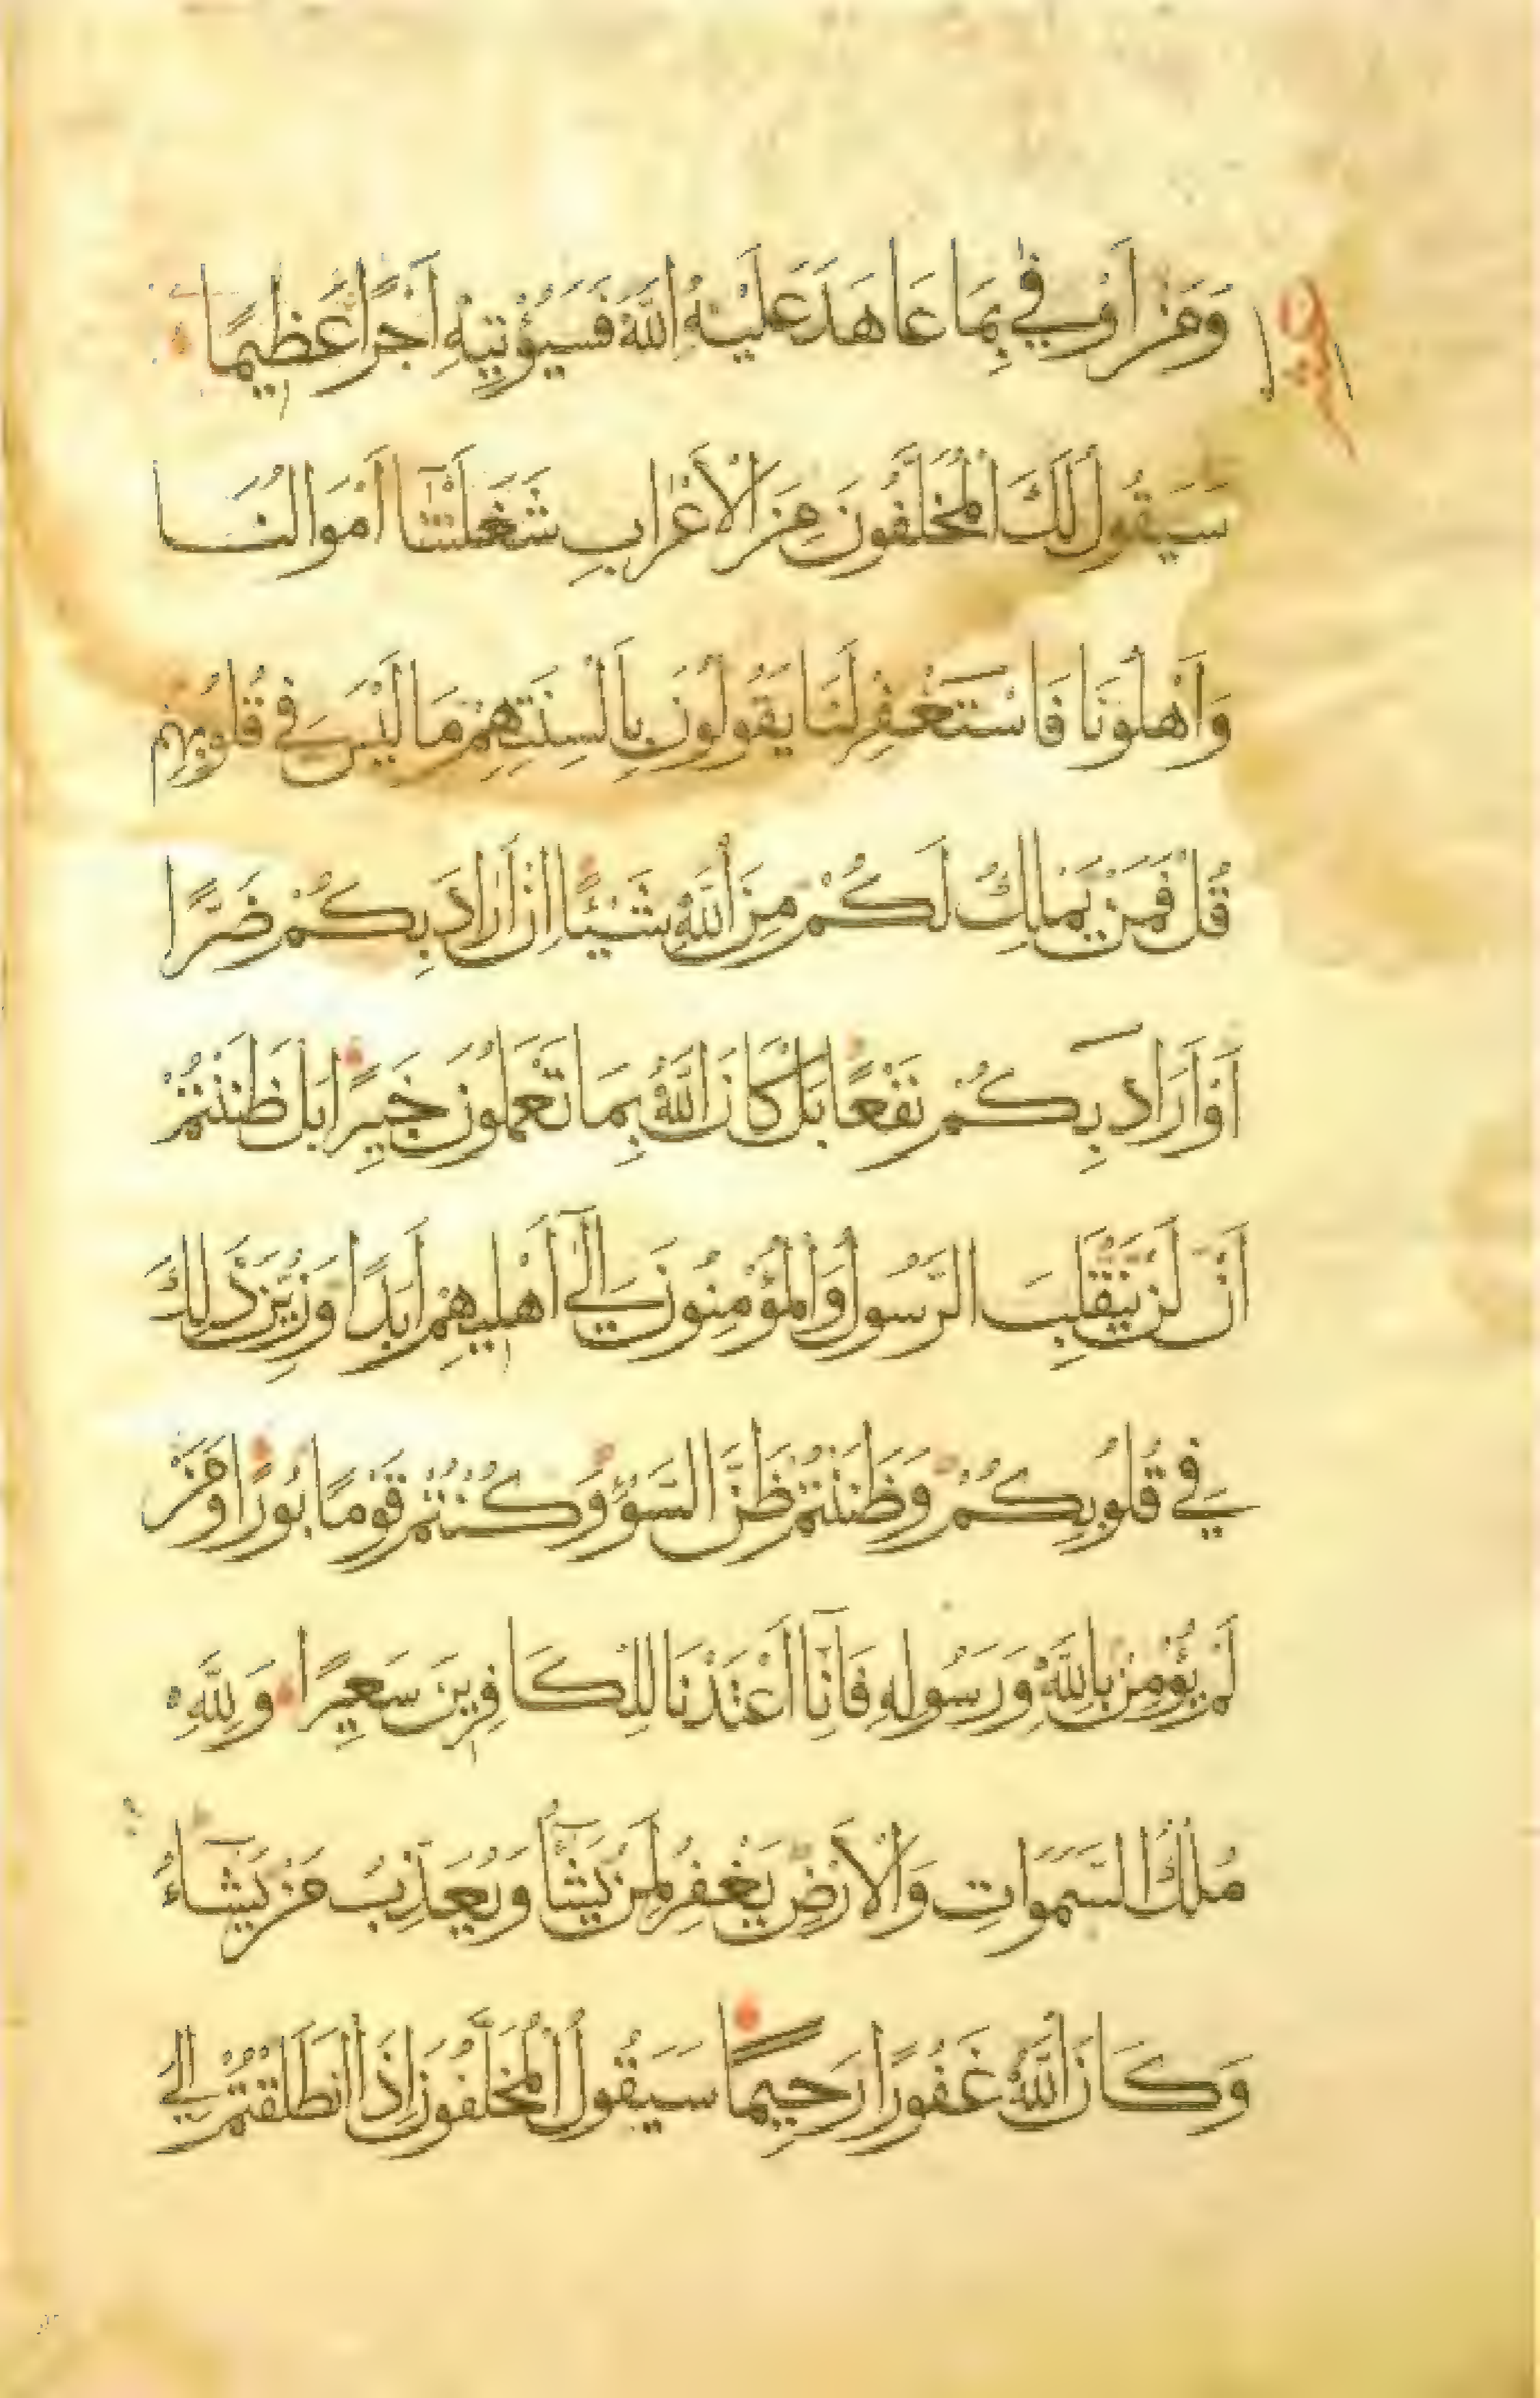 وَمَنْ اَوْفٰي بِمَا عَاهَدَ عَلَيْهُ اللّٰهَ فَسَيُؤْتِيهِ اَجْرًا عَظِيمًا
سَيَقُولُ لَكَ الْمُخَلَّفُونَ مِنَ الْاَعْرَابِ شَغَلَتْنَآ اَمْوَالُنَا
وَاَهْلُونَا فَاسْتَغْفِرْ لَنَا يَقُولُونَ بِاَلْسِنَتِهِمْ مَا لَيْسَ فِي قُلُوبِهِمْ
قُلْ فَمَنْ يَمْلِكُ لَكُمْ مِنَ اللّٰهِ شَيْئًا اِنْ اَرَادَ بِكُمْ ضَرًّا
اَوْ اَرَادَ بِكُمْ نَفْعًا بَلْ كَانَ اللّٰهُ بِمَا تَعْمَلُونَ خَبِيرًا بَلْ ظَنَنْتُمْ
اَنْ لَنْ يَنْقَلِبَ الرَّسُولُ وَالْمُؤْمِنُونَ اِلٰٓي اَهْلِيهِمْ اَبَدًا وَزُيِّنَ ذٰلِكَ
فِي قُلُوبِكُمْ وَظَنَنْتُمْ ظَنَّ السَّوْءِ وَكُنْتُمْ قَوْمًا بُورًا وَمَنْ
لَمْ يُؤْمِنْ بِاللّٰهِ وَرَسُولِهِ فَاِنَّآ اَعْتَدْنَا لِلْكَافِرِينَ سَعِيرًا وَلِلّٰهِ
مُلْكُ السَّمَوَاتِ وَالْاَرْضِ يَغْفِرُ لِمَنْ يَشَآءُ وَيُعَذِّبُ مَنْ يَشَآءُ
وَكَانَ اللّٰهُ غَفُورًا رَحِيمًا سَيَقُولُ الْمُخَلَّفُونَ اِذَا انْطَلَقْتُمْ اِلٰي